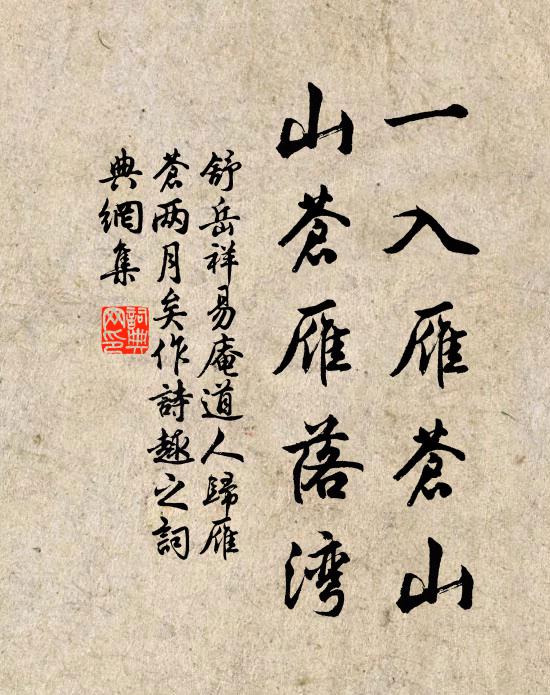 一入雁蒼山
山蒼雁落湾
舒岳祥易庵道人歸雁
蒼两月矣作詩趣之詞
典網集
詞典
网印